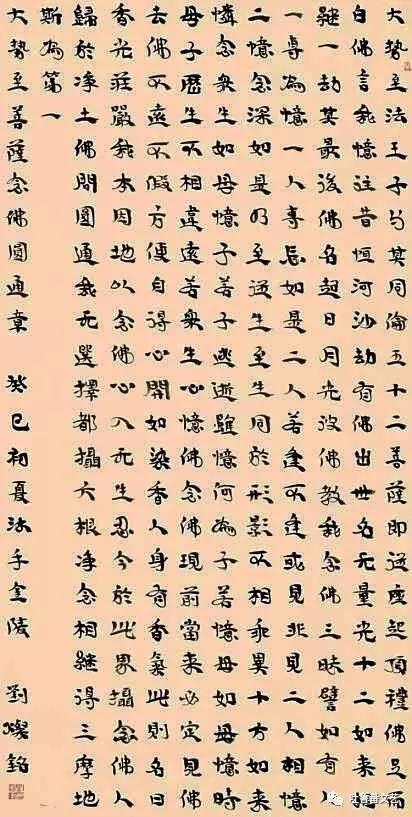 大勢至法王子与其同倫五十二菩薩即從座起頂禮佛足
白佛言我憶往昔恒河沙劫有佛出世名无量光十二如來
繼一劫其最後佛名超日月光彼佛教我念佛三昧譬如有人
一專為憶一人專忘如是二人若逢不逢或見非見二人相憶
二憶念深如是乃至從生至生同於形影不相乖異十方如來
憐念衆生如母憶子若子逃逝雖憶何為子若憶母如母憶時
母子歷生不相違遠若衆生心憶佛念佛現前當來必定見佛
去佛不遠不假方便自得心開如染香人身有香氣此則名曰
香光莊嚴我本因地以念佛心入无生忍今於此界攝念佛人
歸於净土佛問圓通我无選擇都攝六根净念相繼得三摩地
斯為第一
大勢至菩薩念佛圓通章 癸巳初夏沐手金陵 劉燦銘